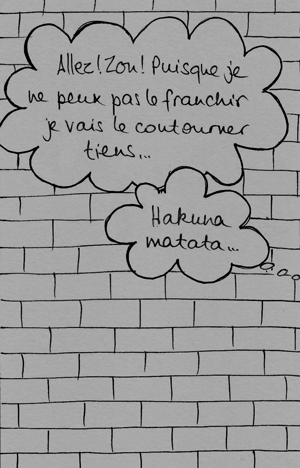 Allez! Zou! Puisque je
ne peux pas le franchir
je vais le contourner
tiens...
Hakuna
matata...